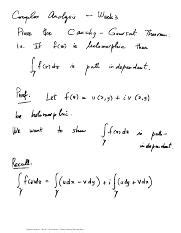 Complex Analysis — Week 3
Prove the Cauchy - Goursat Theorem:
i.e. If f(z) is holomorphic then
∫γ f(z)dz is path independent.
Proof: Let f(z) = u(x,y) + i v(x,y)
be holomorphic.
We want to show ∫γ f(z)dz is path-
independent.
Recall:
∫γ f(z)dz = ∫γ (udx - vdy) + i ∫γ (vdx + udy)